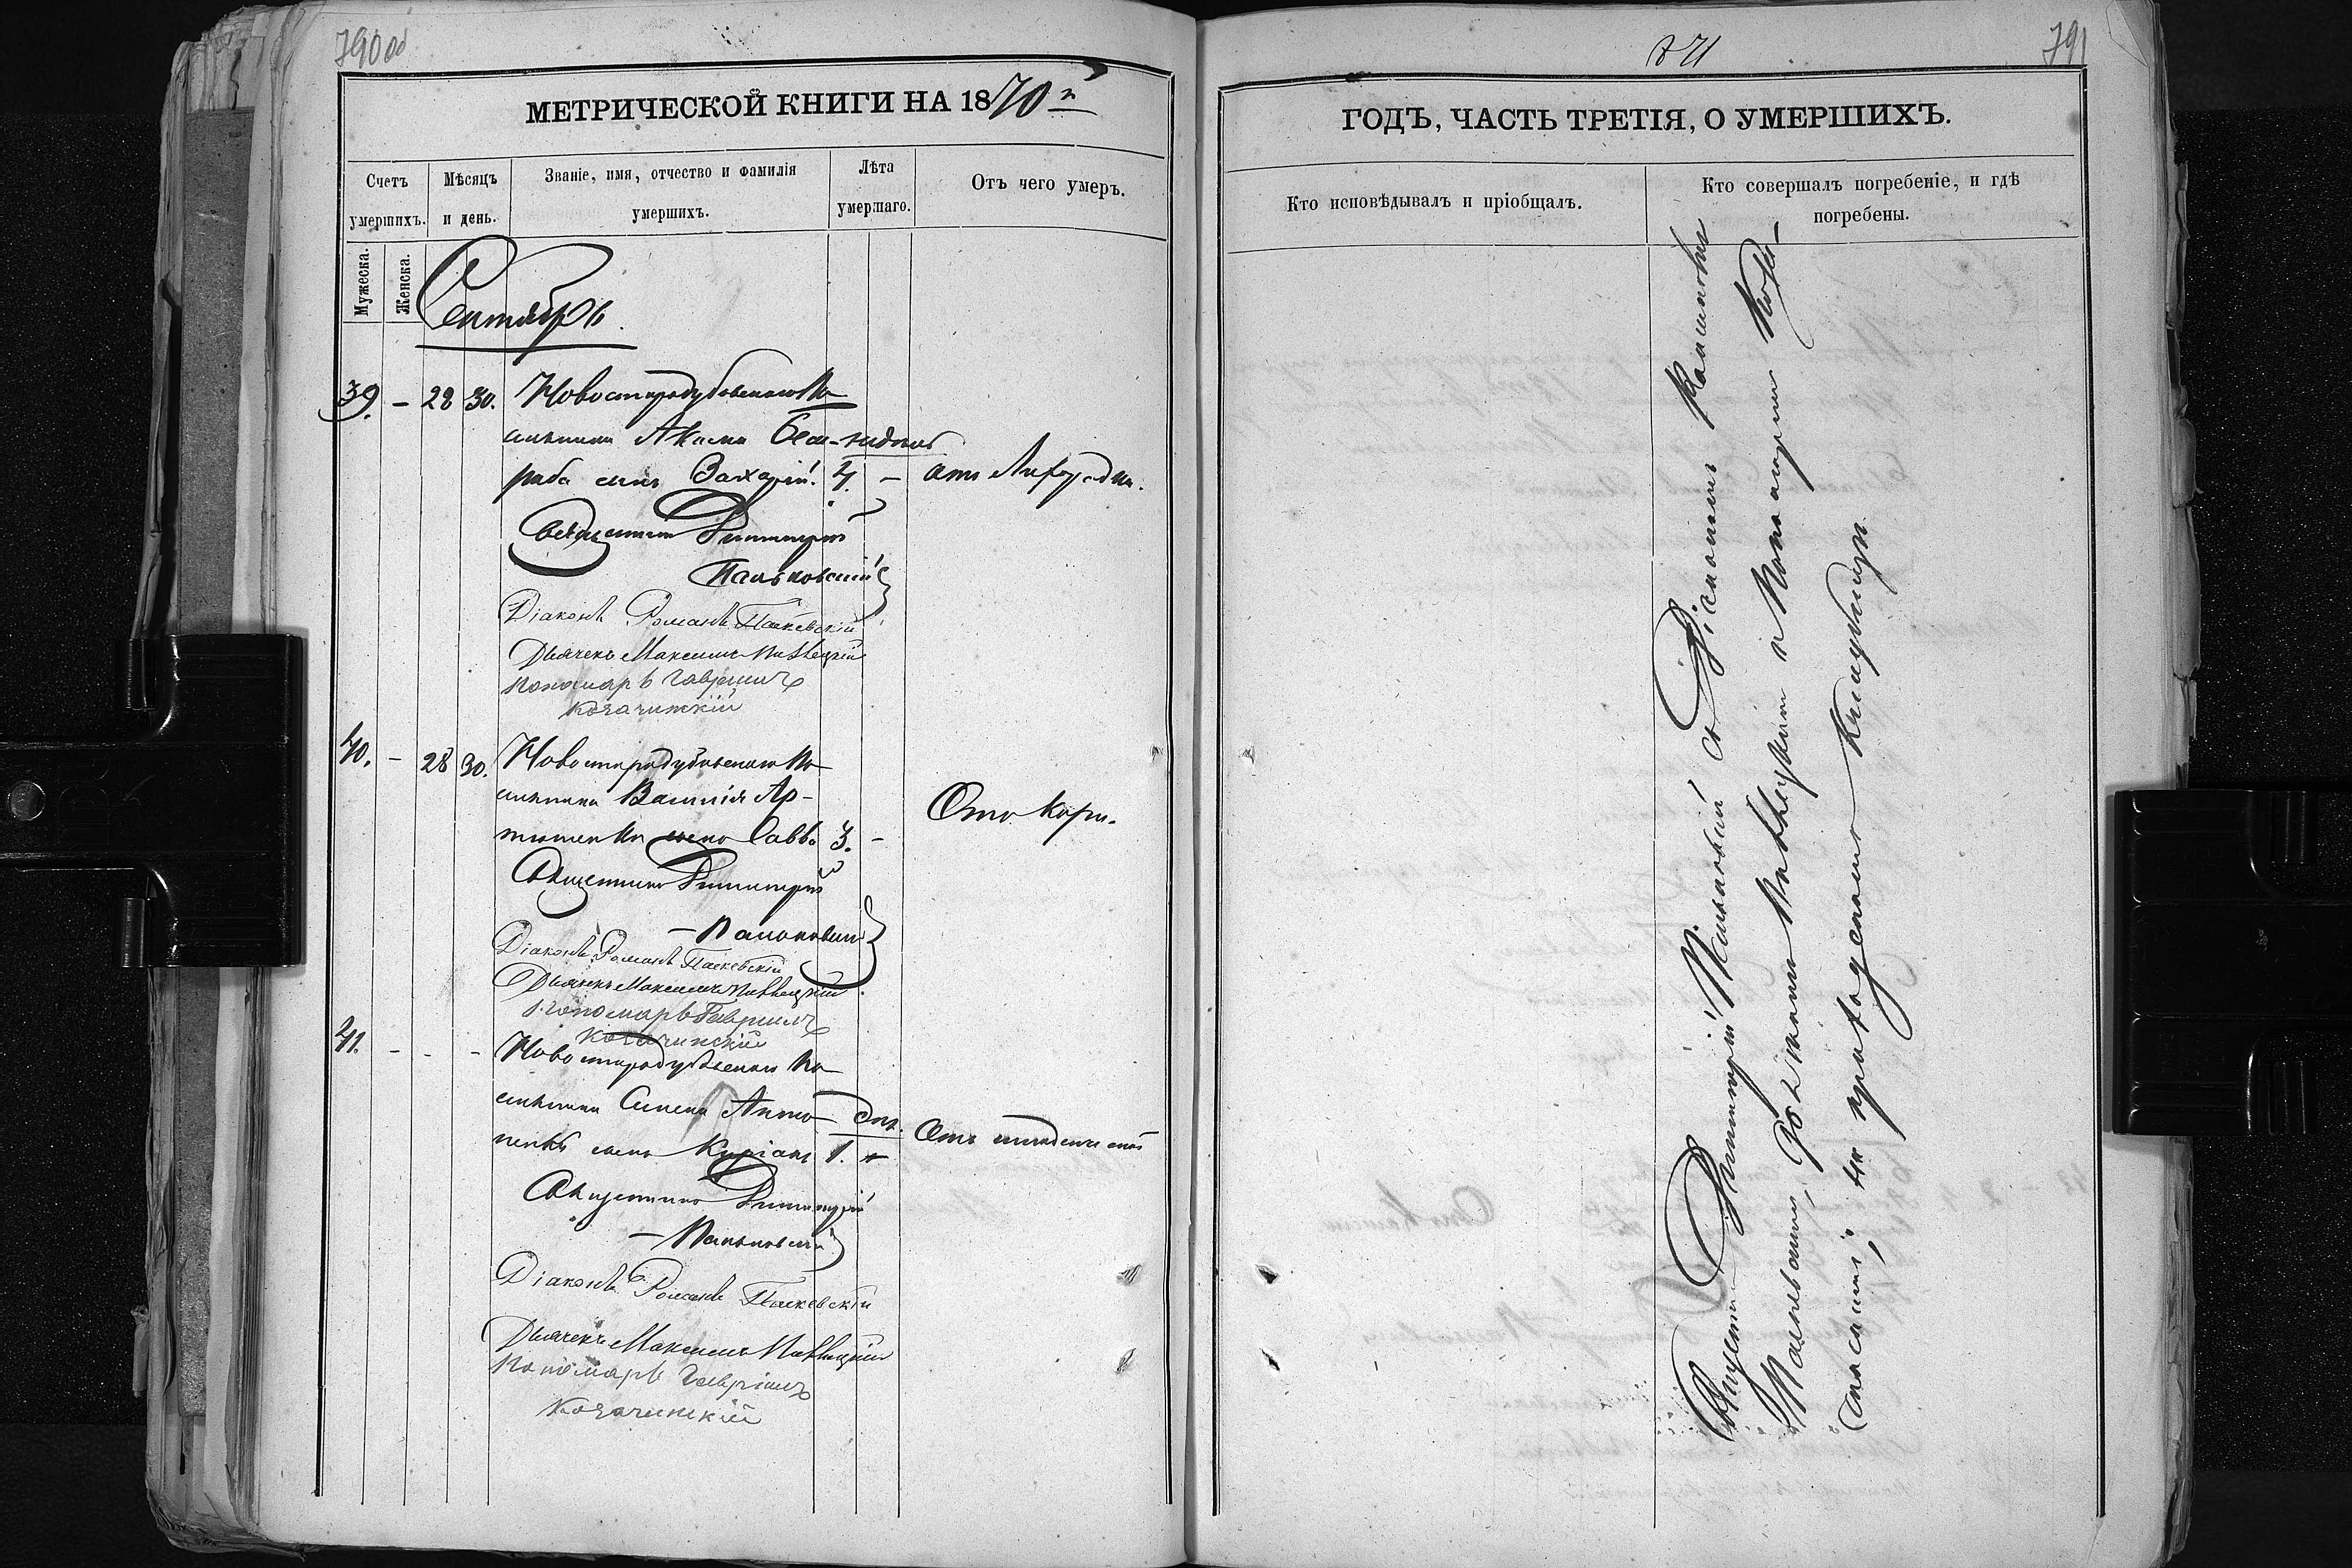 790 об
МЕТРИЧЕСКОЙ КНИГИ НА 1870й
Счетъ умершихъ.
Мѣсяцъ и день.
Званіе, имя, отчество и фамилія умершихъ.
Лѣта умершаго.
Отъ чего умеръ.
Мужеска.
Женска.
Сентябрь.
39. – 28 30. Новостародубскаго По-
селянина Акима
раба сынъ Захарій. 4. –
Священникъ Димитрій
Паньковскій
Діаконъ Романъ Паскевскій
Дьячекъ Максимъ
Пономарь Гавріилъ
Козачинскій
40. – 28 30. Новостародубскаго По-
селянина Василія Ар-
тюшенка сынъ Савва 3. – Отъ Кори.
Священникъ Димитрій
Паньковскій
Діаконъ Романъ Паскевскій
Дьячекъ Максимъ
Пономарь Гавріилъ
Козачинскій
41. – – – Новостародубскаго По-
селянина Симена Анто-
ненка сынъ Купріанъ 1. Отъ младенческой
Священникъ Димитрій
Паньковскій
Діаконъ Романъ Паскевскій
Дьячекъ Максимъ
Пономарь Гавріилъ
Козачинскій
791
ГОДЪ, ЧАСТЬ ТРЕТІЯ, О УМЕРШИХЪ.
Кто исповѣдывалъ и пріобщалъ.
Кто совершалъ погребеніе, и гдѣ погребены.
Священникъ Димитрій Паньковскій съ Діакономъ Романомъ
и Пономаремъ
на приходскомъ Кладбищѣ.